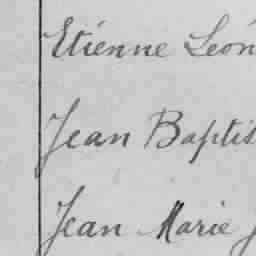 Etienne Léon
Jean Baptis
Jean Marie J